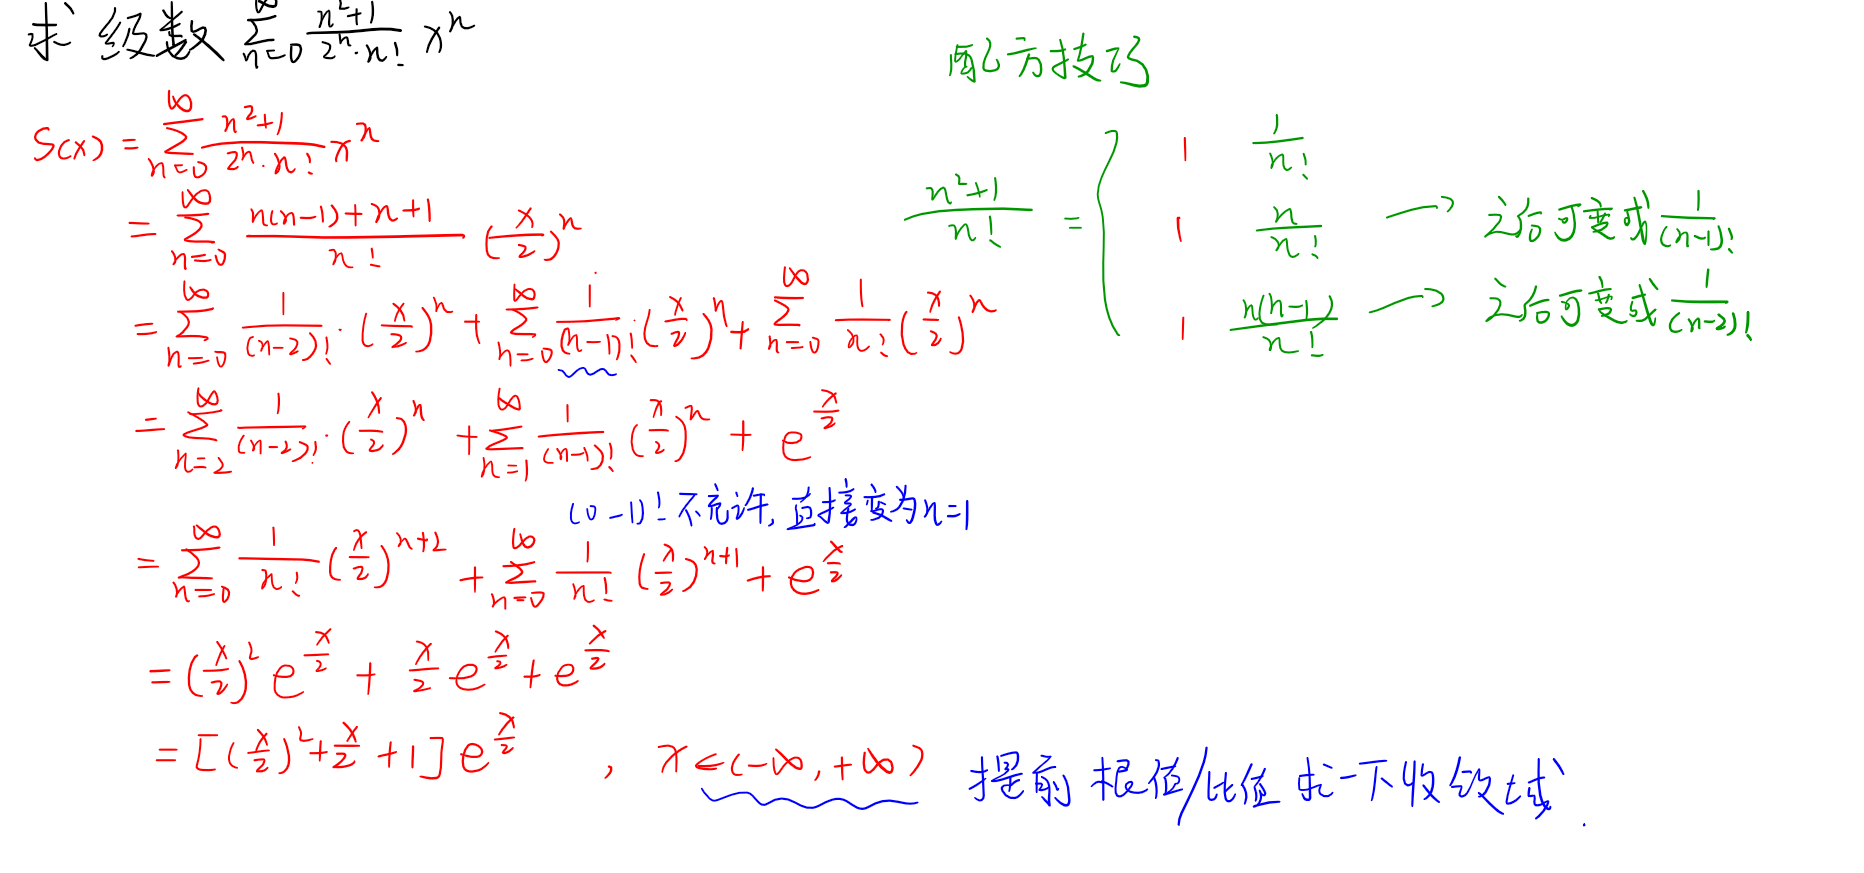 求级数 $\sum_{n=0}^{\infty} \frac{n^2+1}{2^n \cdot n!} x^n$
配方技巧
$S(x) = \sum_{n=0}^{\infty} \frac{n^2+1}{2^n \cdot n!} x^n$
$= \sum_{n=0}^{\infty} \frac{n(n-1)+n+1}{n!} (\frac{x}{2})^n$
$= \sum_{n=0}^{\infty} \frac{1}{(n-2)!} \cdot (\frac{x}{2})^n + \sum_{n=0}^{\infty} \frac{1}{(n-1)!} (\frac{x}{2})^n + \sum_{n=0}^{\infty} \frac{1}{n!} (\frac{x}{2})^n$
$= \sum_{n=2}^{\infty} \frac{1}{(n-2)!} \cdot (\frac{x}{2})^n + \sum_{n=1}^{\infty} \frac{1}{(n-1)!} (\frac{x}{2})^n + e^{\frac{x}{2}}$
(0-1)! 不允许, 直接变为n=1
$= \sum_{n=0}^{\infty} \frac{1}{n!} (\frac{x}{2})^{n+2} + \sum_{n=0}^{\infty} \frac{1}{n!} (\frac{x}{2})^{n+1} + e^{\frac{x}{2}}$
$= (\frac{x}{2})^2 e^{\frac{x}{2}} + \frac{x}{2} e^{\frac{x}{2}} + e^{\frac{x}{2}}$
$= [(\frac{x}{2})^2 + \frac{x}{2} + 1] e^{\frac{x}{2}}$ , $x \in (-\infty, +\infty)$ 提前 根值/比值 求一下收敛域.
$\frac{n^2+1}{n!} = \{$
1 $\frac{1}{n!}$
1 $\frac{n}{n!}$ → 之后可变成 $\frac{1}{(n-1)!}$
1 $\frac{n(n-1)}{n!}$ → 之后可变成 $\frac{1}{(n-2)!}$